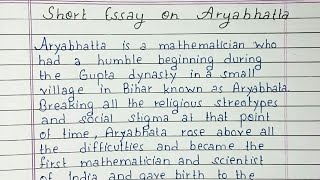 Short Essay on Aryabhatta
Aryabhatta is a mathematician who
had a humble beginning during
the Gupta dynasty in a small
village in Bihar known as Aryabhata.
Breaking all the religious streotypes
and social stigma at that point
of time, Aryabhata rose above all
the difficulties and became the
first mathematician and scientist
of India and gave birth to the